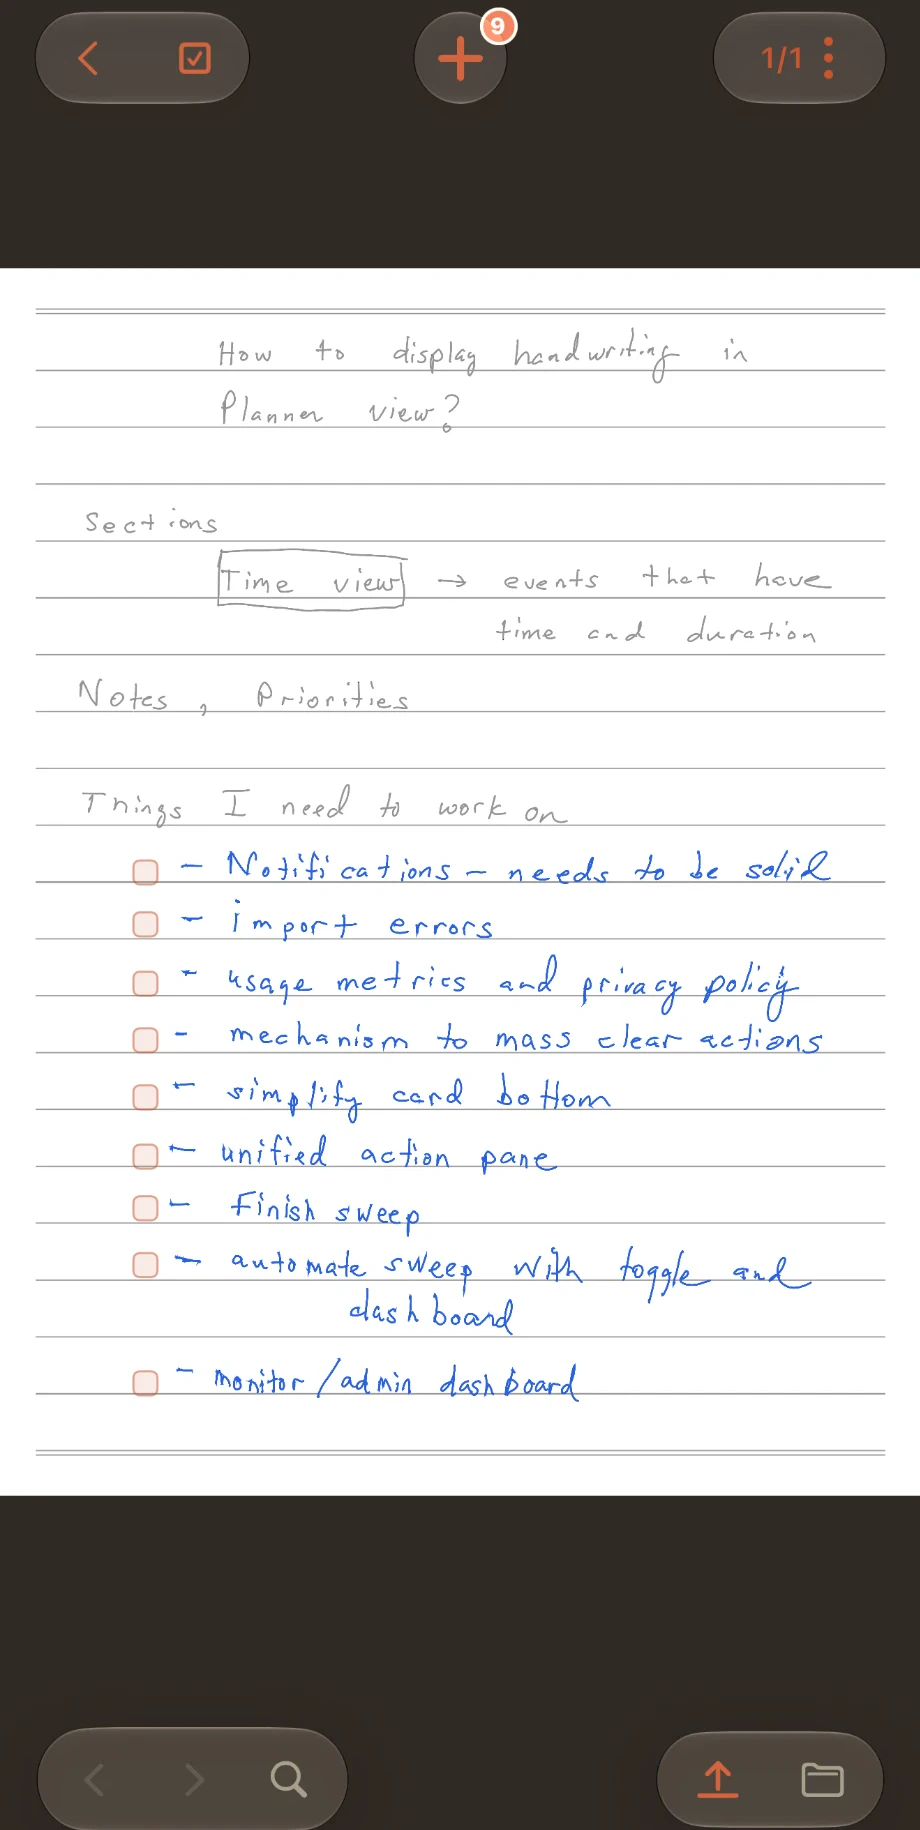 9
1/1
How to display handwriting in
Planner view?
Sections
Time view → events that have
time and duration
Notes, Priorities
Things I need to work on
- Notifications - needs to be solid
- import errors
- usage metrics and privacy policy
- mechanism to mass clear actions
- simplify card bottom
- unified action pane
- Finish sweep
- automate sweep with toggle and
dashboard
- monitor/admin dashboard